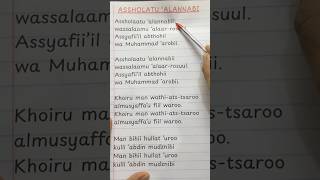 ASSHOLATU 'ALANNABI
Assholaatu 'alannabii
wassalaamu 'alaar-rosuul.
Assyafii'il abthohii
wa Muhammad 'arobii.
Assholaatu 'alannabii
wassalaamu 'alaar-rosuul.
Assyafii'il abthohii
wa Muhammad 'arobii.
Khoiru man wathi-ats-tsaroo
almusyaffa'u fiil waroo.
Khoiru man wathi-ats-tsaroo
almusyaffa'u fiil waroo.
Man bihii hullat 'uroo
kulli 'abdin mudznibi
Man bihii hullat 'uroo
kulli 'abdin mudznibi